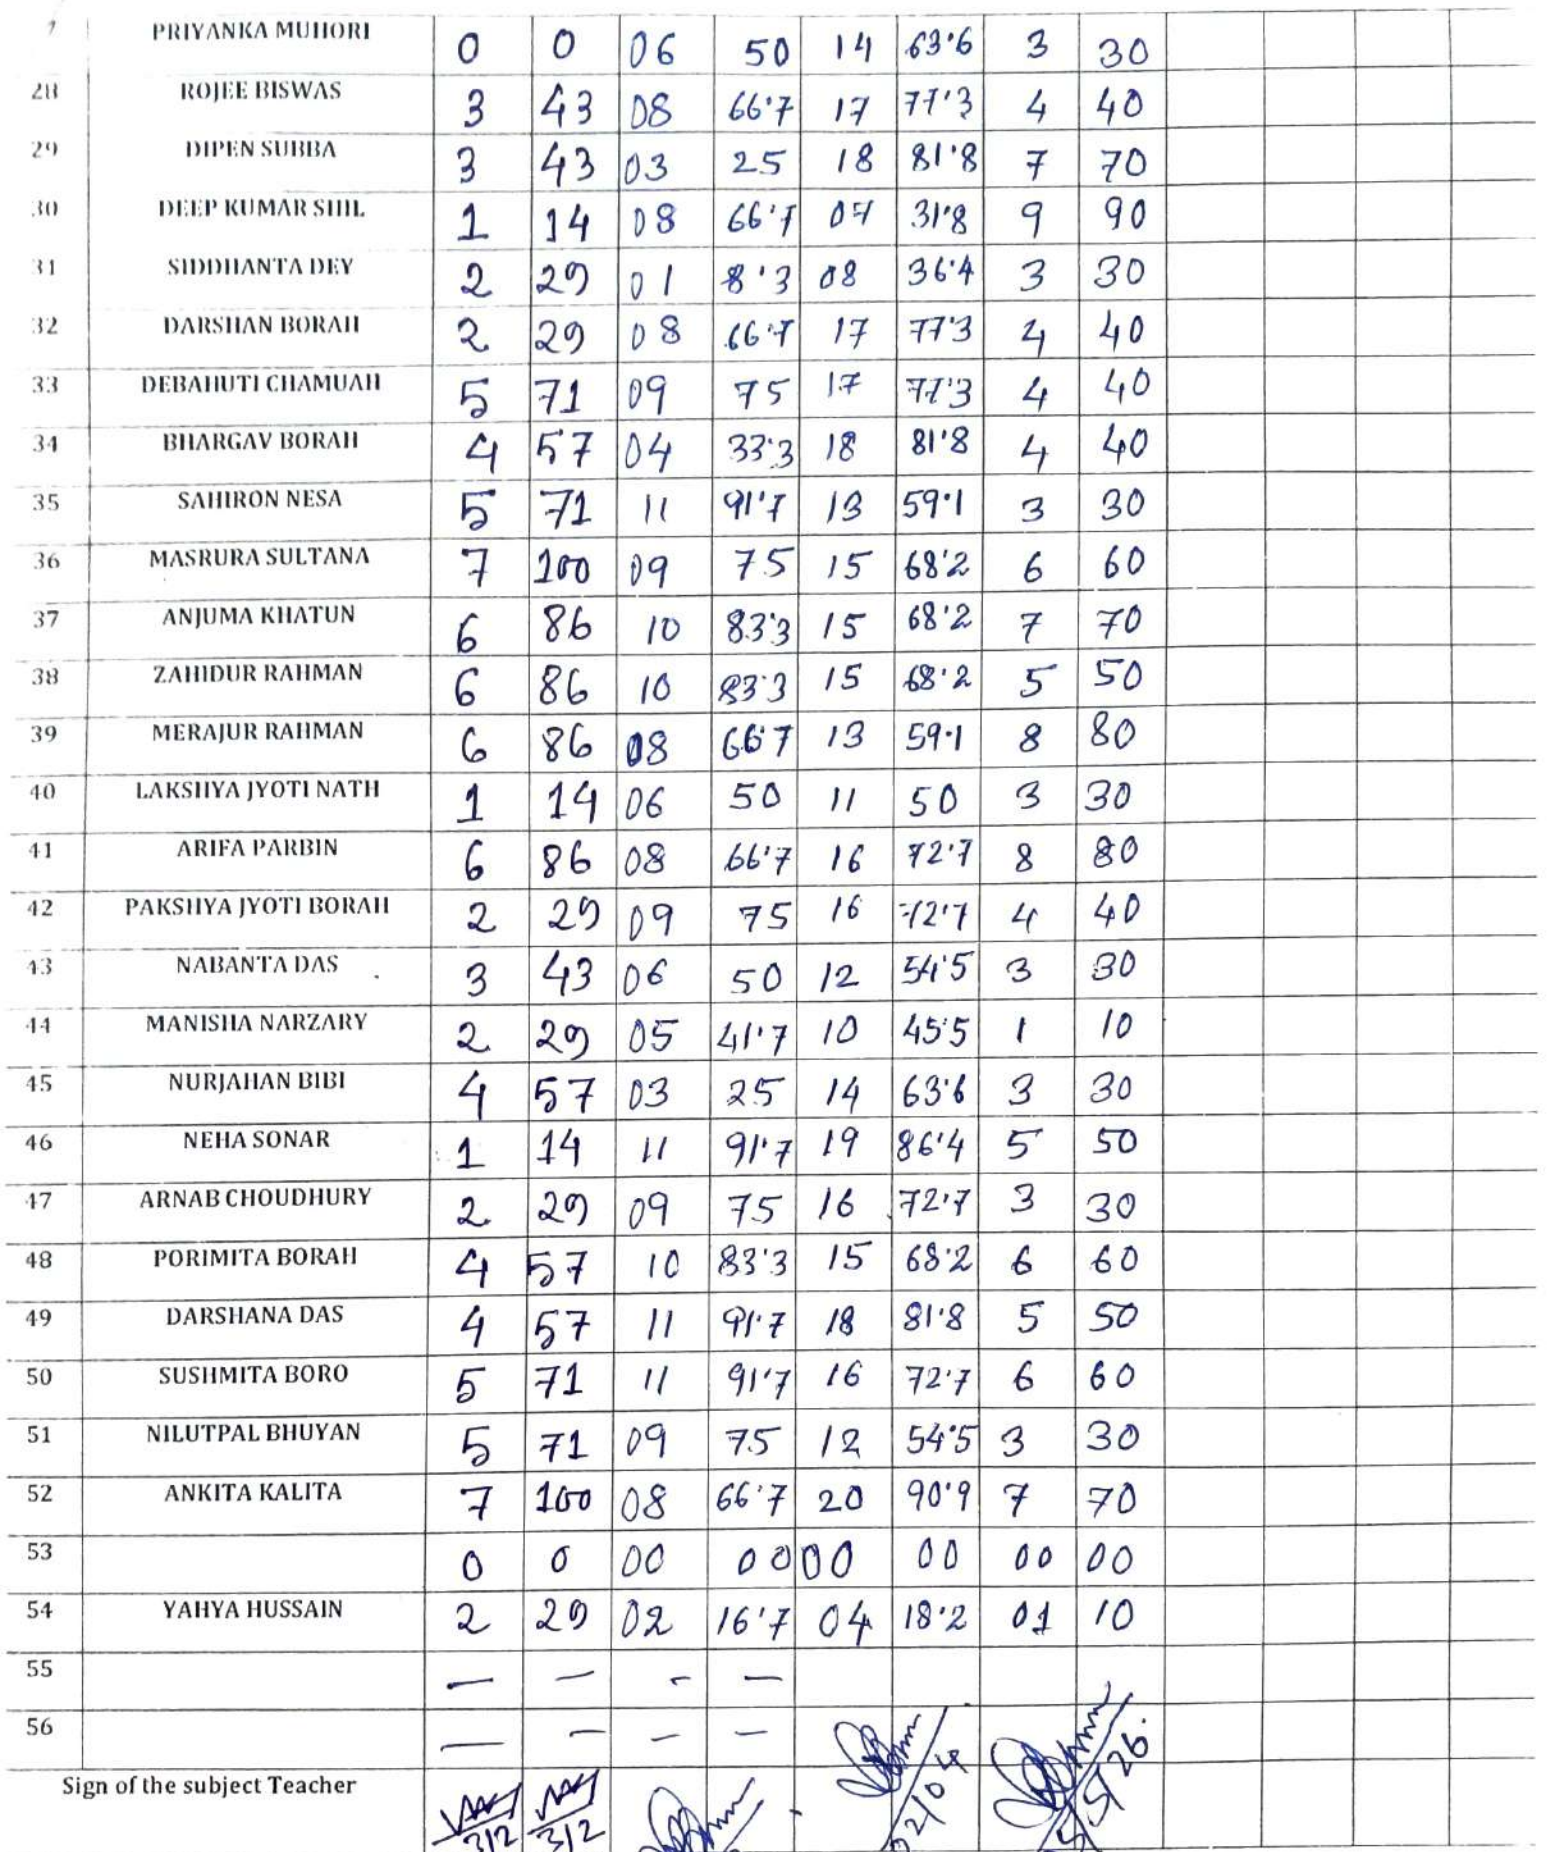 PRIYANKA MUHORI 0 0 06 50 14 63.6 3 30
28 ROJEE BISWAS 3 43 08 66.7 17 77.3 4 40
29 DIPEN SUBBA 3 43 03 25 18 81.8 7 70
30 DEEP KUMAR SHIL 1 14 08 66.7 07 31.8 9 90
31 SIDDHANTA DEY 2 29 01 8.3 08 36.4 3 30
32 DARSHAN BORAH 2 29 08 66.7 17 77.3 4 40
33 DEBAHUTI CHAMUAH 5 71 09 75 17 77.3 4 40
34 BHARGAV BORAH 4 57 04 33.3 18 81.8 4 40
35 SAHIRON NESA 5 71 11 91.7 13 59.1 3 30
36 MASRURA SULTANA 7 100 09 75 15 68.2 6 60
37 ANJUMA KHATUN 6 86 10 83.3 15 68.2 7 70
38 ZAHIDUR RAHMAN 6 86 10 83.3 15 68.2 5 50
39 MERAJUR RAHMAN 6 86 08 66.7 13 59.1 8 80
40 LAKSHYA JYOTI NATH 1 14 06 50 11 50 3 30
41 ARIFA PARBIN 6 86 08 66.7 16 72.7 8 80
42 PAKSHYA JYOTI BORAH 2 29 09 75 16 72.7 4 40
43 NABANTA DAS 3 43 06 50 12 54.5 3 30
44 MANISHA NARZARY 2 29 05 41.7 10 45.5 1 10
45 NURJAHAN BIBI 4 57 03 25 14 63.6 3 30
46 NEHA SONAR 1 14 11 91.7 19 86.4 5 50
47 ARNAB CHOUDHURY 2 29 09 75 16 72.7 3 30
48 PORIMITA BORAH 4 57 10 83.3 15 68.2 6 60
49 DARSHANA DAS 4 57 11 91.7 18 81.8 5 50
50 SUSHMITA BORO 5 71 11 91.7 16 72.7 6 60
51 NILUTPAL BHUYAN 5 71 09 75 12 54.5 3 30
52 ANKITA KALITA 7 100 08 66.7 20 90.9 7 70
53 0 0 00 00 00 00 00 00
54 YAHYA HUSSAIN 2 29 02 16.7 04 18.2 01 10
55 — — - —
56 — — — —
Sign of the subject Teacher 3/2 3/2 02/04 5/5/26.